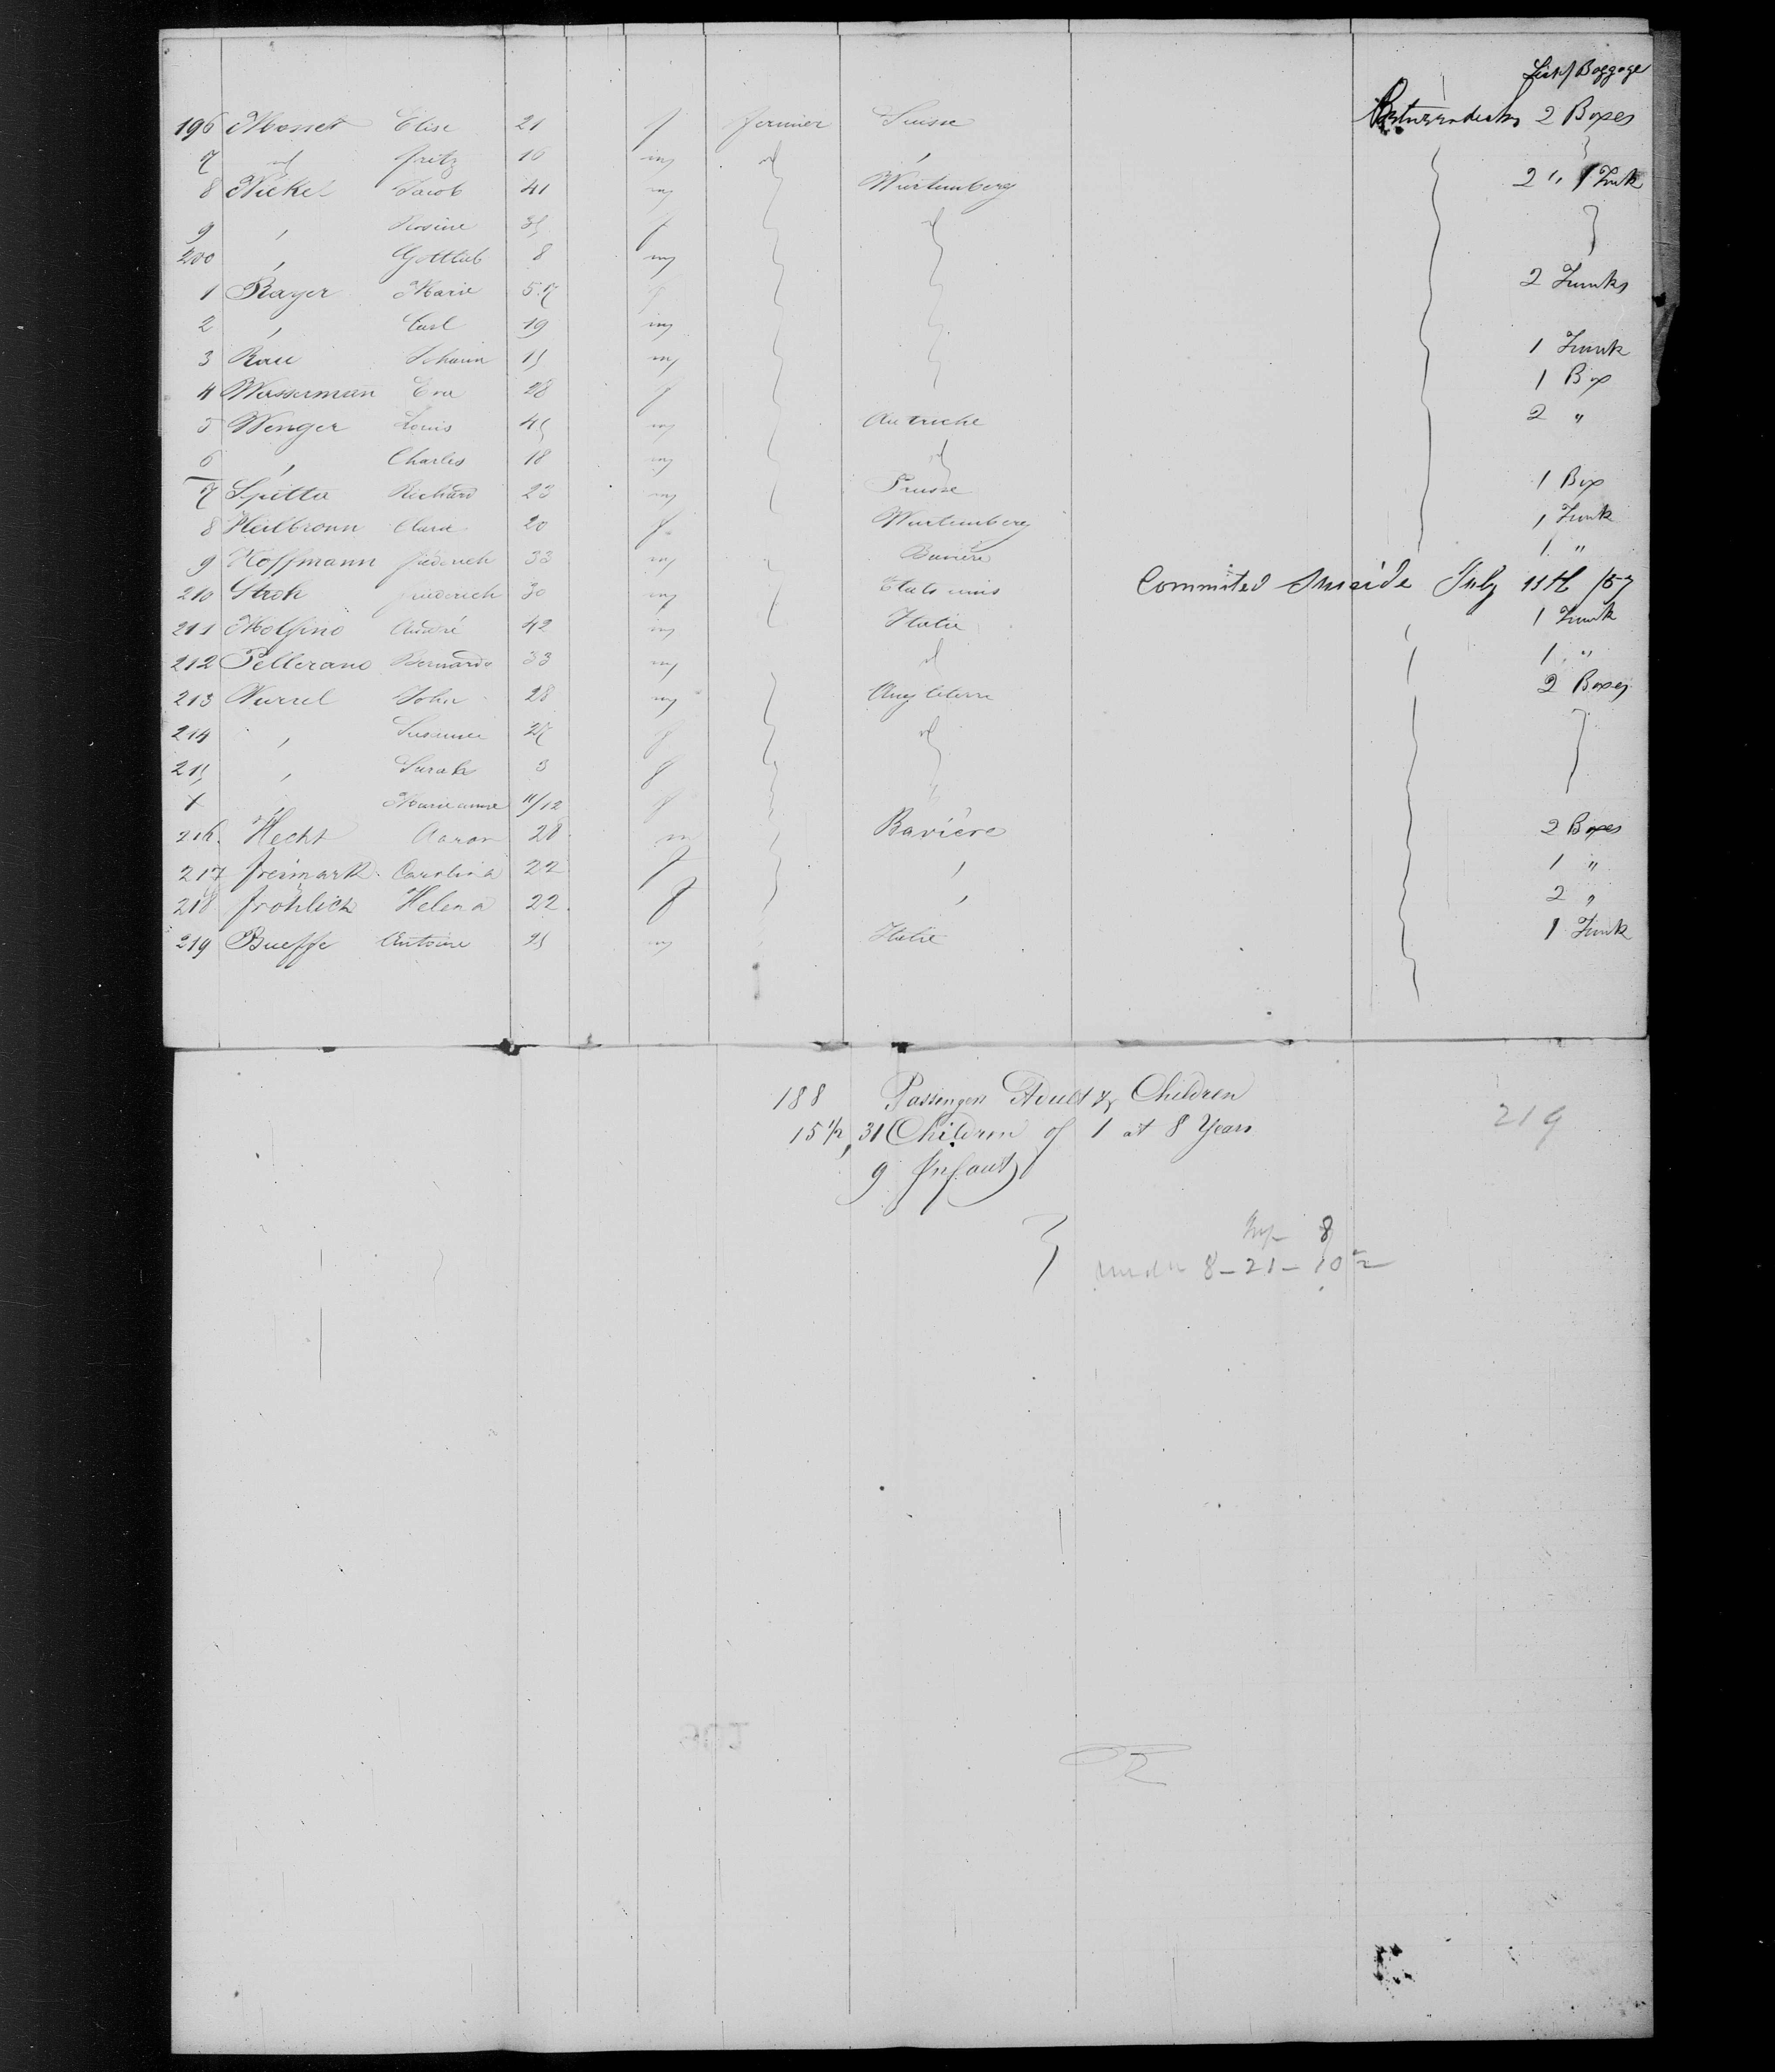 List of Baggage
196 Monnet Elise 21 f fermier Suisse Betweendecks 2 Boxes
7 id fritz 16 m id ,
8 Nickel Jacob 41 m Würtemberg 2 " 1 Trunk
9 , Rosine 35 f id
200 , Gottlieb 8 m
1 Rayer Marie 57 f 2 Trunks
2 , Carl 19 m
3 Rau Johann 15 m 1 Trunk
4 Wasserman Eva 28 f 1 Box
5 Wenger Louis 45 m Autriche 2 "
6 , Charles 18 m id
7 Spitta Richard 23 m Prusse 1 Box
8 Heilbronn Clara 20 f Wurtemberg 1 Trunk
9 Hoffmann friederich 33 m Bavière 1 "
210 Stroh friederich 30 m Etats unis Commited Suicide July 11th /57
211 Molfino André 42 m Italie 1 Trunk
212 Pellerano Bernardo 33 m id 1 "
213 Nurrel John 28 m Angleterre 2 Boxes
214 , Susanne 27 f id
215 , Sarah 3 f
X Marie anne 11/12 f "
216 Hecht Aaron 28 m Bavière 2 Boxes
217 freimark Carolina 22 f , 1 "
218 fröhlich Helena 22 f , 2 "
219 Bueffe Antoine 25 m Italie 1 Trunk
188 Passengers Adult & Children
15 1/2, 31 Children of 1 at 8 Years
219
9 Infants
Inf - 8
under 8 - 21 - 10